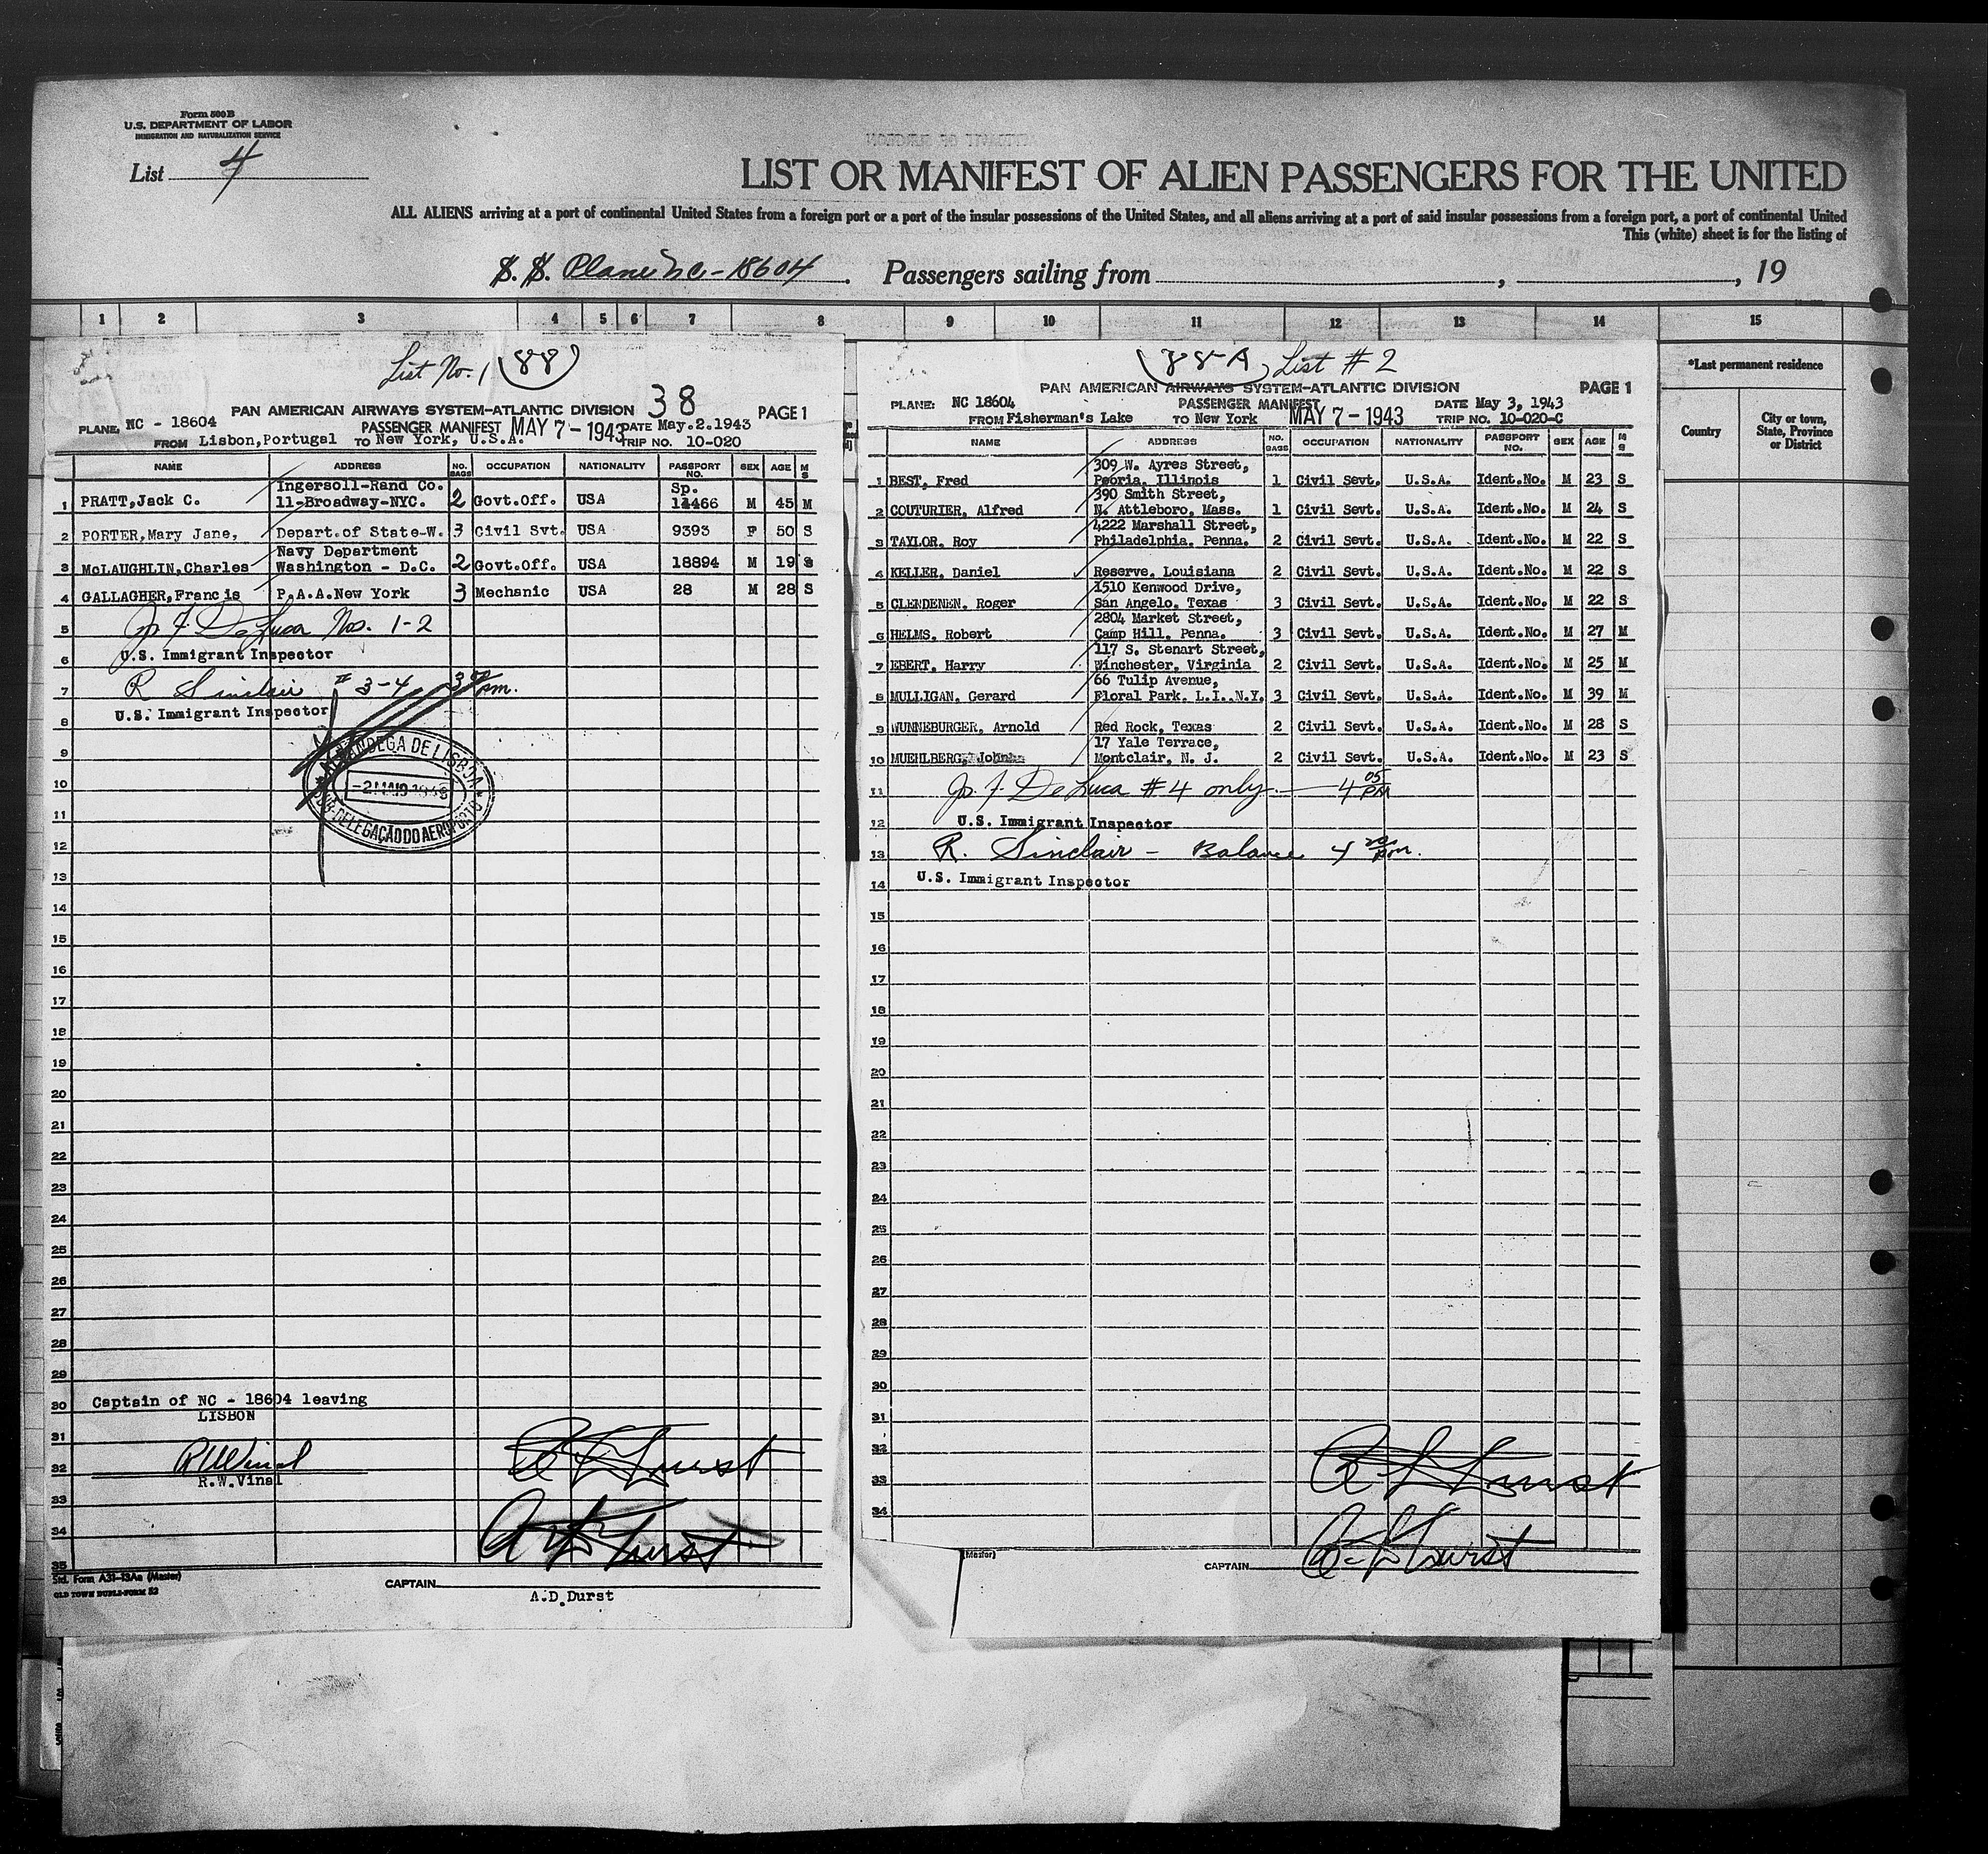 Form 500 B
U.S. DEPARTMENT OF LABOR
IMMIGRATION AND NATURALIZATION SERVICE
List 4
LIST OR MANIFEST OF ALIEN PASSENGERS FOR THE UNITED
ALL ALIENS arriving at a port of continental United States from a foreign port or a port of the insular possessions of the United States, and all aliens arriving at a port of said insular possessions from a foreign port, a port of continental United
This (white) sheet is for the listing of
S. S. Plane NC-18604. Passengers sailing from , , 19
1 2 3 4 5 6 7 8 9 10 11 12 13 14 15
*Last permanent residence
Country City or town, State, Province or District
List No. 1 (88)
38
PAN AMERICAN AIRWAYS SYSTEM-ATLANTIC DIVISION PAGE 1
PLANE: NC - 18604 PASSENGER MANIFEST MAY 7 - 1943 DATE May.2.1943
FROM Lisbon,Portugal TO New York, U.S.A. TRIP NO. 10-020
NAME ADDRESS NO. BAGS OCCUPATION NATIONALITY PASSPORT NO. SEX AGE M S
1 PRATT,Jack C. Ingersoll-Rand Co. 11-Broadway-NYC. 2 Govt.Off. USA Sp. 14466 M 45 M
2 PORTER,Mary Jane, Depart.of State-W. 3 Civil Svt. USA 9393 F 50 S
3 McLAUGHLIN,Charles Navy Department Washington - D.C. 2 Govt.Off. USA 18894 M 19 S
4 GALLAGHER,Francis P.A.A.New York 3 Mechanic USA 28 M 28 S
5 Jos. F. DeLuca Nos. 1-2
6 U.S. Immigrant Inspector
7 R Sinclair # 3-4 3 pm.
8 U.S. Immigrant Inspector
9
10
11
12
13
14
15
16
17
18
19
20
21
22
23
24
25
26
27
28
29
30
31
32
33
34
35
ALFANDEGA DE LISBOA
-2 MAIO 1943
SUB-DELEGAÇÃO DO AEROPORTO
Captain of NC - 18604 leaving
LISBON
R W Vinal
R.W.Vinal
A D Durst
A D Durst
Std. Form A31-13Aa (Master)
OLD TOWN DUPLI-FORM 52
CAPTAIN
A.D.Durst
(88-A) List #2
PAN AMERICAN AIRWAYS SYSTEM-ATLANTIC DIVISION PAGE 1
PLANE: NC 18604 PASSENGER MANIFEST DATE May 3, 1943
FROM Fisherman's Lake TO New York MAY 7 - 1943 TRIP NO. 10-020-C
NAME ADDRESS NO. BAGS OCCUPATION NATIONALITY PASSPORT NO. SEX AGE M S
1 BEST, Fred 309 W. Ayres Street, Peoria, Illinois 1 Civil Sevt. U.S.A. Ident.No. M 23 S
2 COUTURIER, Alfred 390 Smith Street, N. Attleboro, Mass. 1 Civil Sevt. U.S.A. Ident.No. M 24 S
3 TAYLOR, Roy 4222 Marshall Street, Philadelphia, Penna. 2 Civil Sevt. U.S.A. Ident.No. M 22 S
4 KELLER, Daniel Reserve, Louisiana 2 Civil Sevt. U.S.A. Ident.No. M 22 S
5 CLENDENEN, Roger 1510 Kenwood Drive, San Angelo, Texas 3 Civil Sevt. U.S.A. Ident.No. M 22 S
6 HELMS, Robert 2804 Market Street, Camp Hill, Penna. 3 Civil Sevt. U.S.A. Ident.No. M 27 M
7 EBERT, Harry 117 S. Stenart Street, Winchester, Virginia 2 Civil Sevt. U.S.A. Ident.No. M 25 M
8 MULLIGAN, Gerard 66 Tulip Avenue, Floral Park, L.I.,N.Y. 3 Civil Sevt. U.S.A. Ident.No. M 39 M
9 WUNNEBURGER, Arnold Red Rock, Texas 2 Civil Sevt. U.S.A. Ident.No. M 28 S
10 MUEHLBERG, John 17 Yale Terrace, Montclair, N. J. 2 Civil Sevt. U.S.A. Ident.No. M 23 S
11 Jos. F. DeLuca #4 only 4 05 PM
12 U.S. Immigrant Inspector
13 R. Sinclair - Balance 4 20 pm.
14 U.S. Immigrant Inspector
15
16
17
18
19
20
21
22
23
24
25
26
27
28
29
30
31
32
33
34
A D Durst
A D Durst
(Master)
CAPTAIN